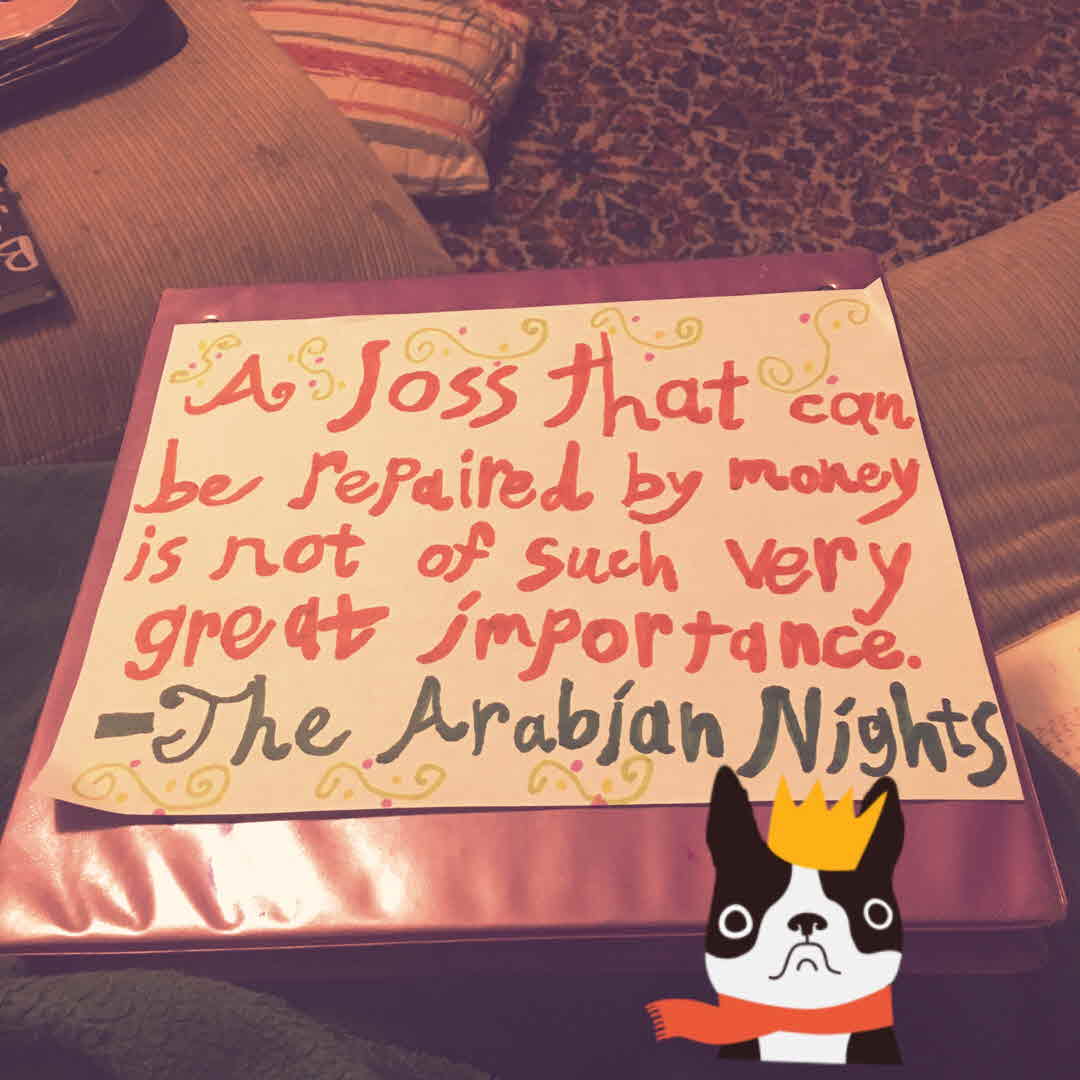 A loss that can
be repaired by money
is not of such very
great importance.
-The Arabian Nights